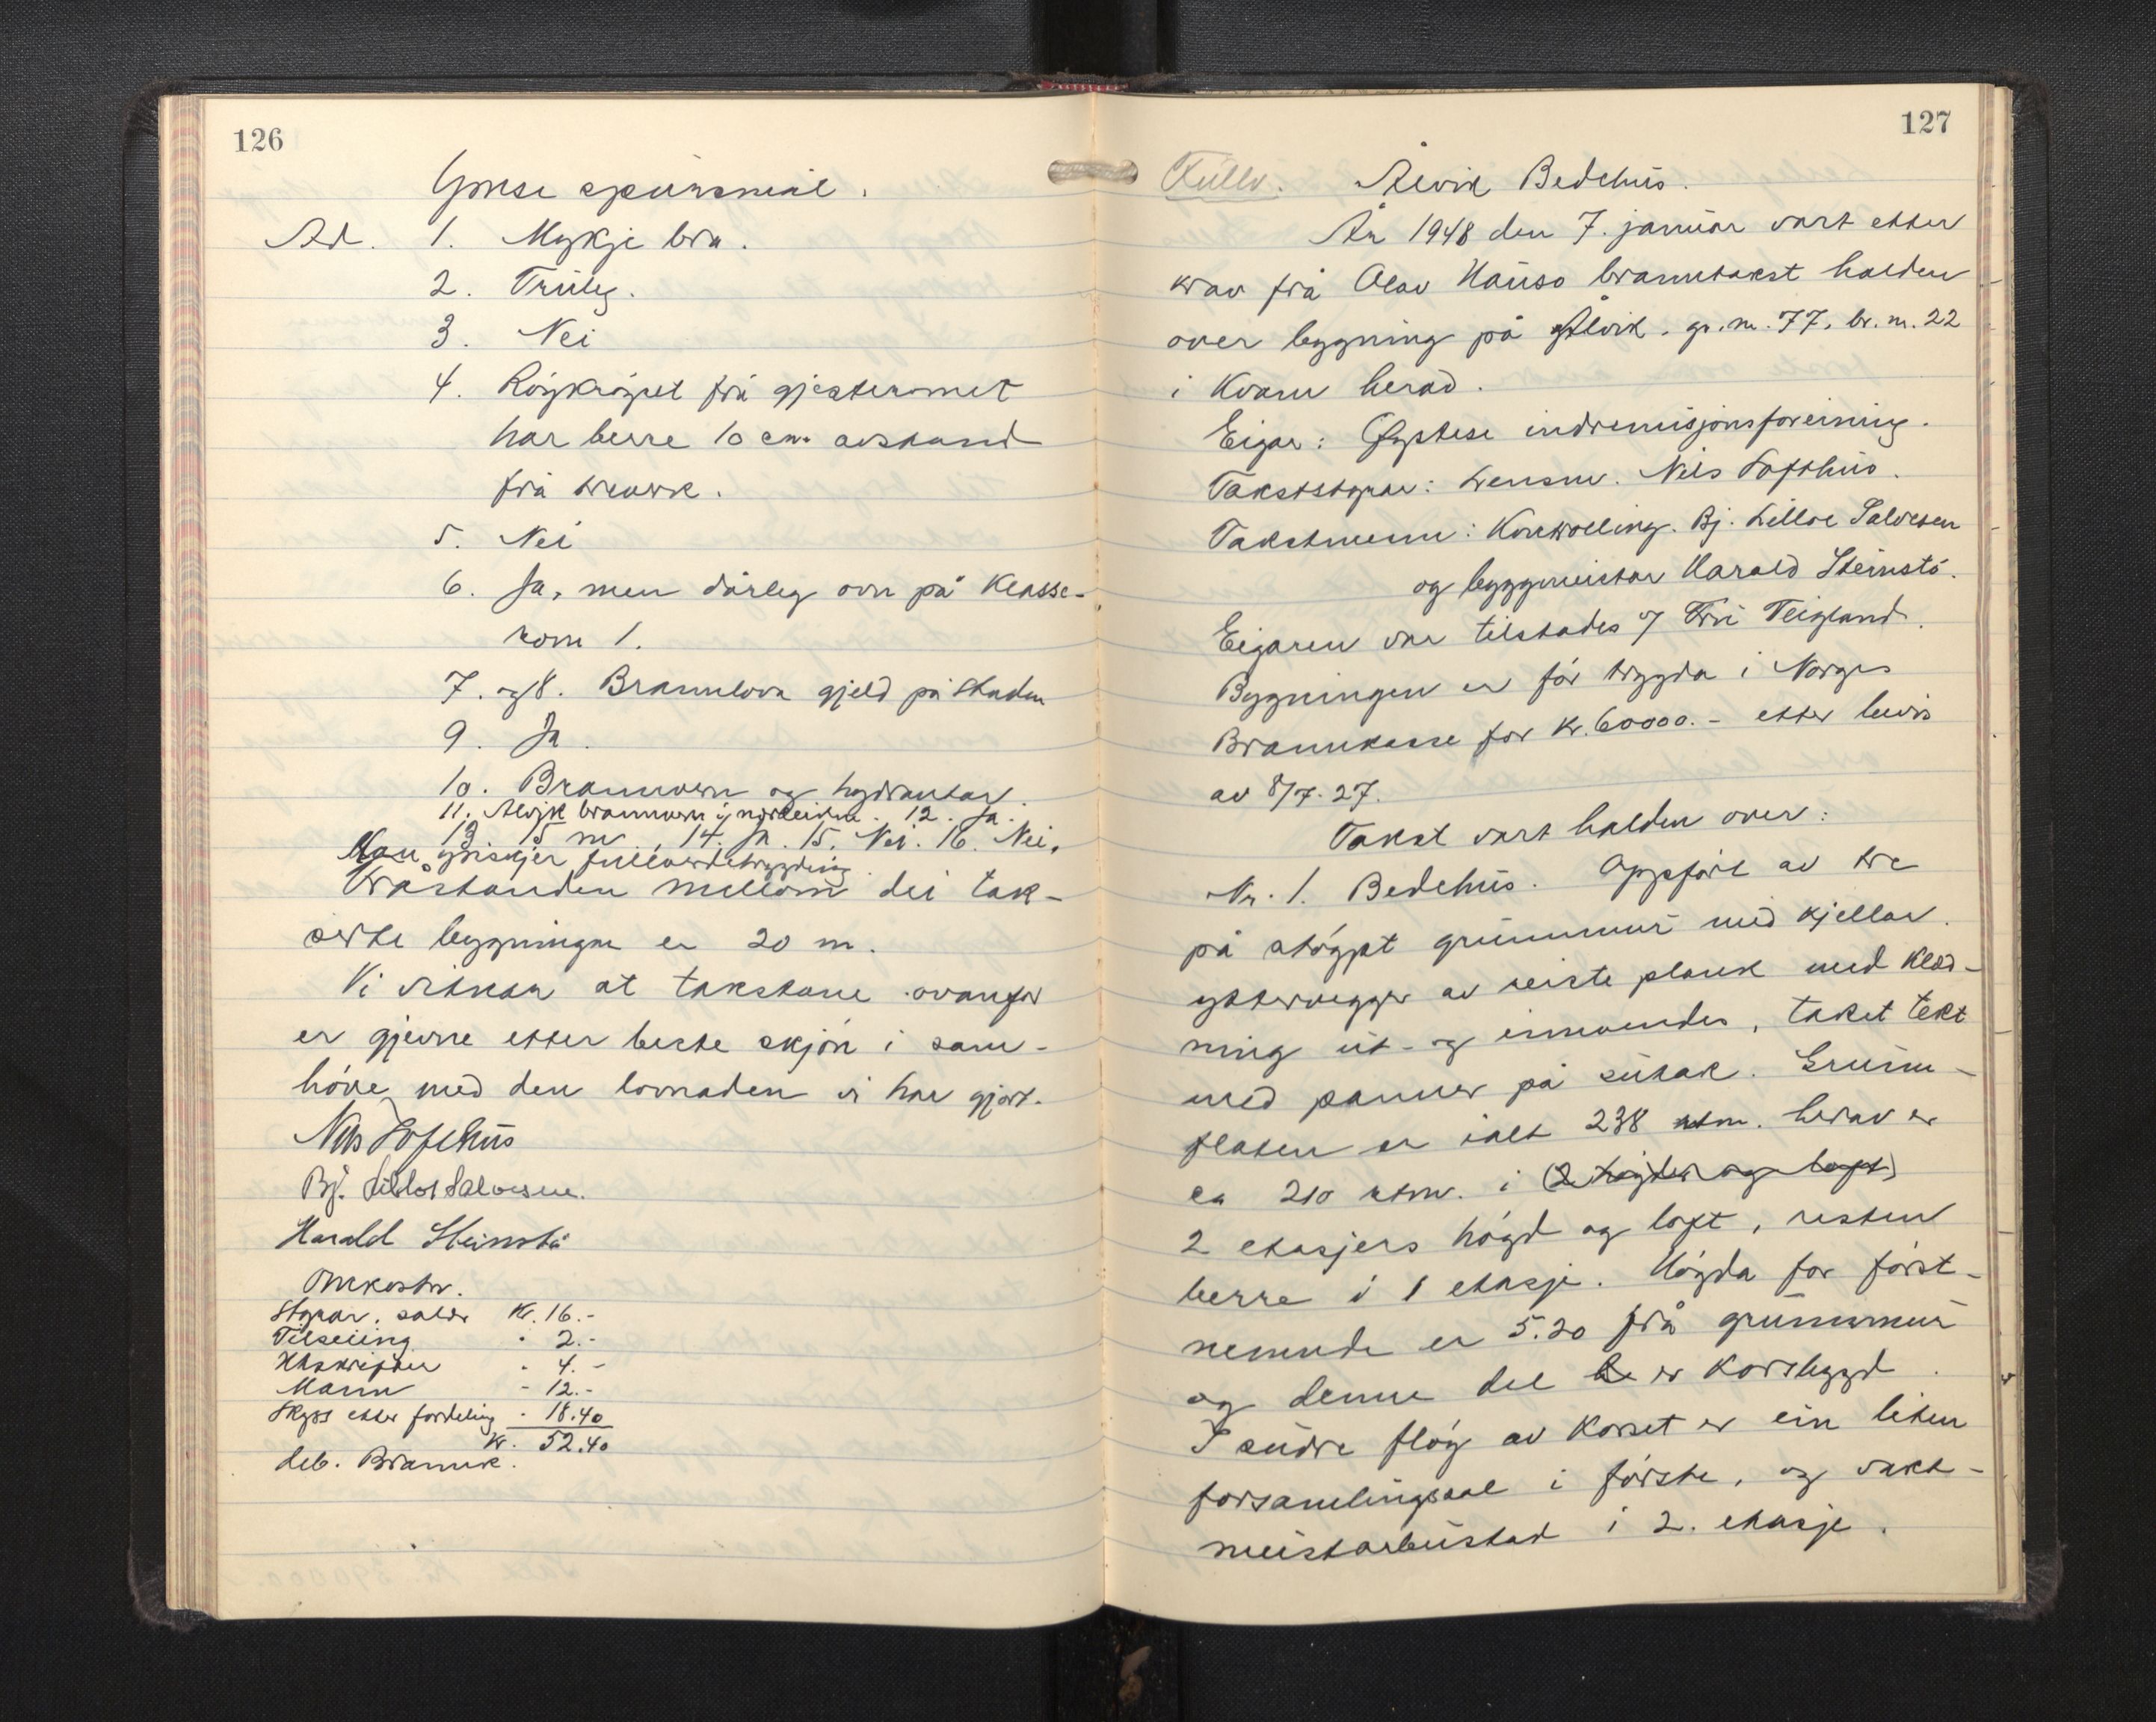 126
Ymse spursmål.
Ad. 1. Mykje bra.
2. Truleg.
3. Nei
4. Röykröyret frå gjesteromet
har berre 10 cm. avstand
frå treverk.
5. Nei
6. Ja, men dårleg ovn på klasse-
rom 1.
7. og 8. Brannlova gjeld på staden
9. Ja.
10. Brannvern og hydrantar.
11. Ålvik brannvern i nærleiken. 12. Ja.
13. 15 m. 14. Ja. 15. Nei. 16. Nei.
Man ynskjer fullverdetrygding.
Fråstanden millom dei tak-
serte bygningar er 20 m.
Vi vitnar at takstane ovanfor
er gjevne etter beste skjön i sam-
höve med den lovnaden vi har gjort.
Nils Lofthus
Bj. Lilloe Salvesen.
Harald Steinstö
Omkostn.
Styrar, salær Kr. 16.-
Tilseiing " 2.-
Utskrifter " 4.-
Mann " 12.-
Skyss etter fordeling " 18.40
Kr. 52.40
deb. Brannk.
127
Fullv. Ålvik Bedehus.
År 1948 den 7. januar vart etter
krav frå Olav Hauso branntakst halden
over bygning på Ålvik. gr. nr. 77, br. nr. 22
i Kvam herad.
Eigar: Öystese indremisjonsforeining.
Takststyrar: Lensm. Nils Lofthus.
Takstmenn: Kontrolling. Bj. Lilloe Salvesen
og byggmeister Harald Steinstö.
Eigaren var tilstades v/ Fru Teigland.
Bygningen er för trygda i Norges
Brannkasse for kr. 60000.- etter bevis
av 8/7.27.
Takst vart halden over:
Nr. 1. Bedehus. Oppfört av tre
på stöypt grunnmur med kjellar.
yttervegger av reiste plank med kled-
ning ut- og innvendes, taket tekt
med panner på sutak. Grunn-
flaten er ialt 238 kvm. herav er
ca 210 kvm. i (2 högder og loft)
2 etasjers högd og loft, resten
berre i 1 etasje. Högda for först-
nemnde er 5.20 frå grunnmur
og denne del er korsbygd.
I södre flöy av korset er ein liten
forsamlingssal i förste, og vakt-
meistarbustad i 2. etasje.